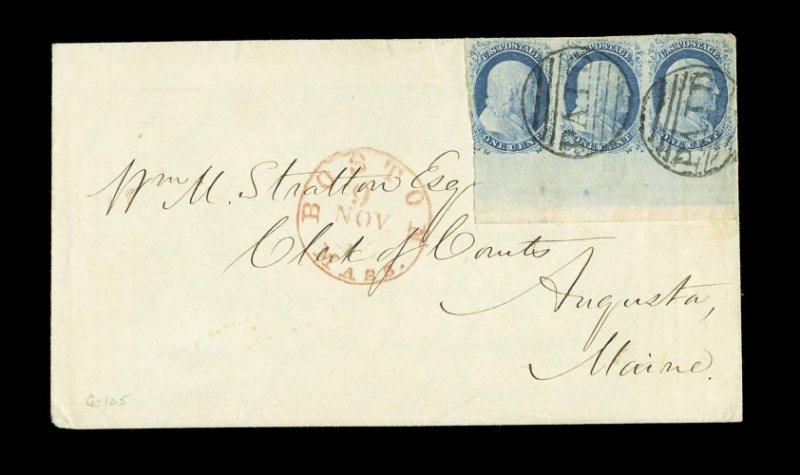 U.S. POSTAGE U.S. POSTAGE U.S. POSTAGE
ONE CENT ONE CENT ONE CENT
PAID PAID
BOSTON
9
NOV
MASS.
Wm M. Stratton Esq
Clek of Courts
Augusta,
Maine.
G-105